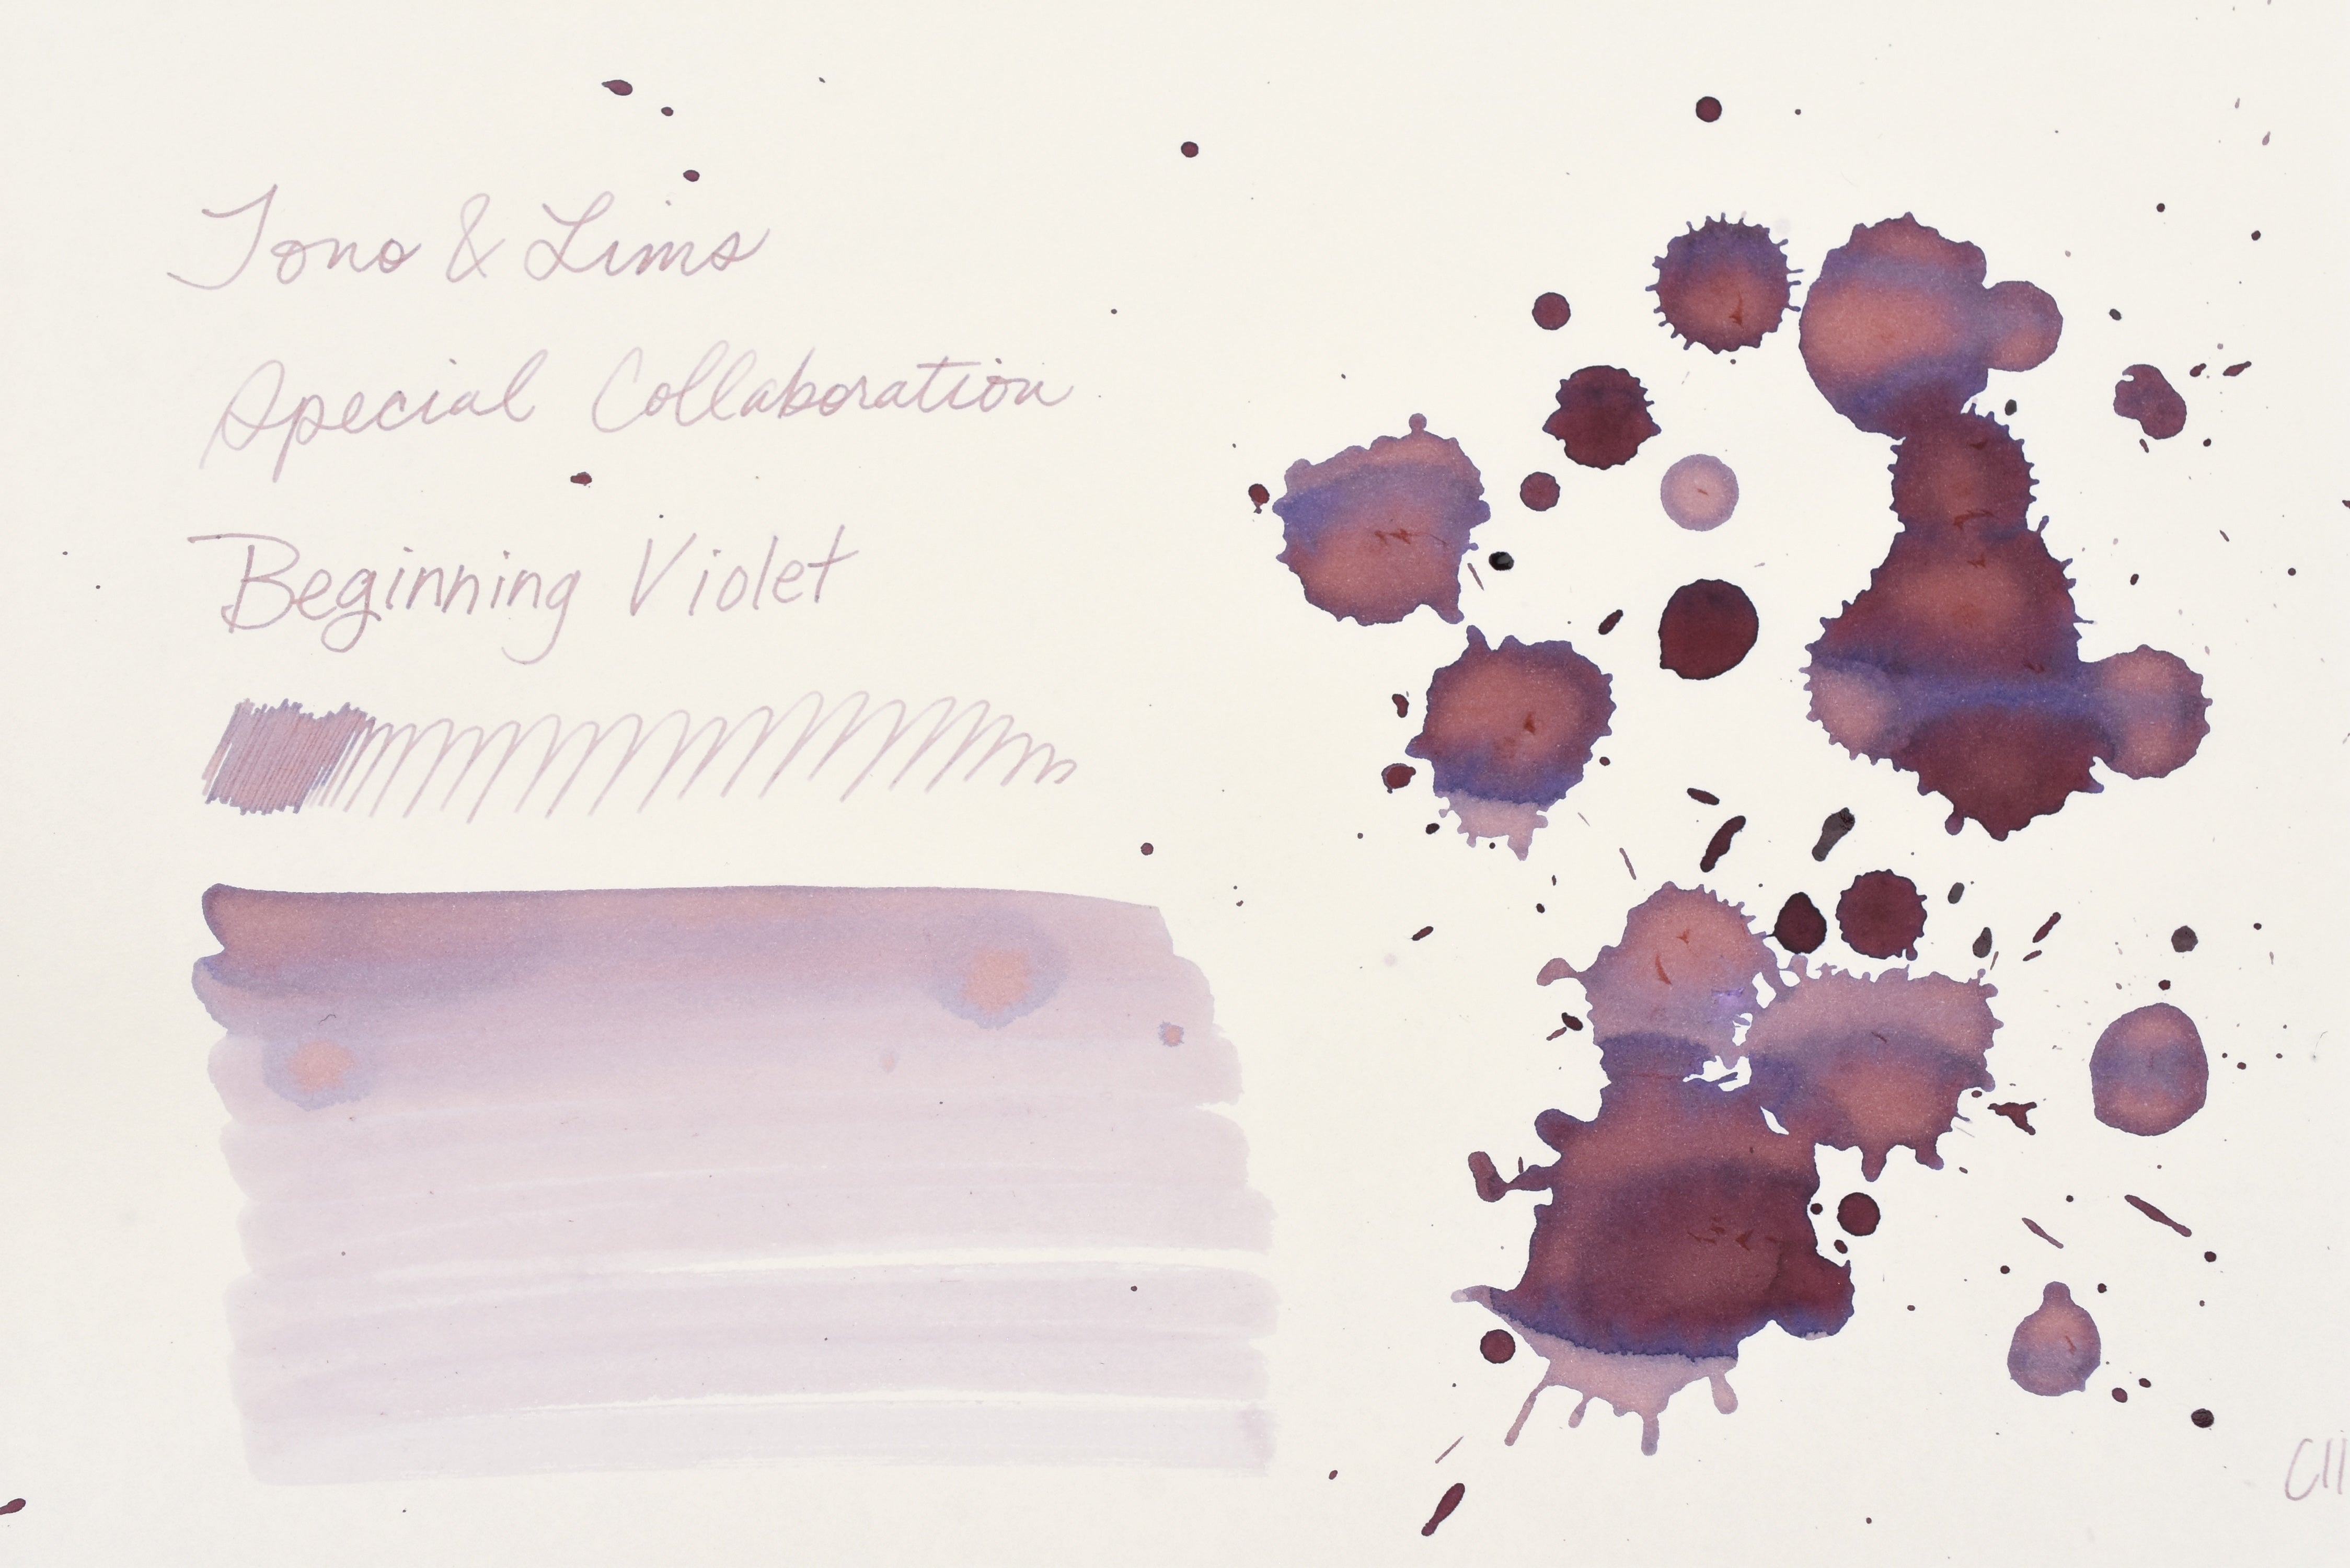 Tono & Lims
Special Collaboration
Beginning Violet